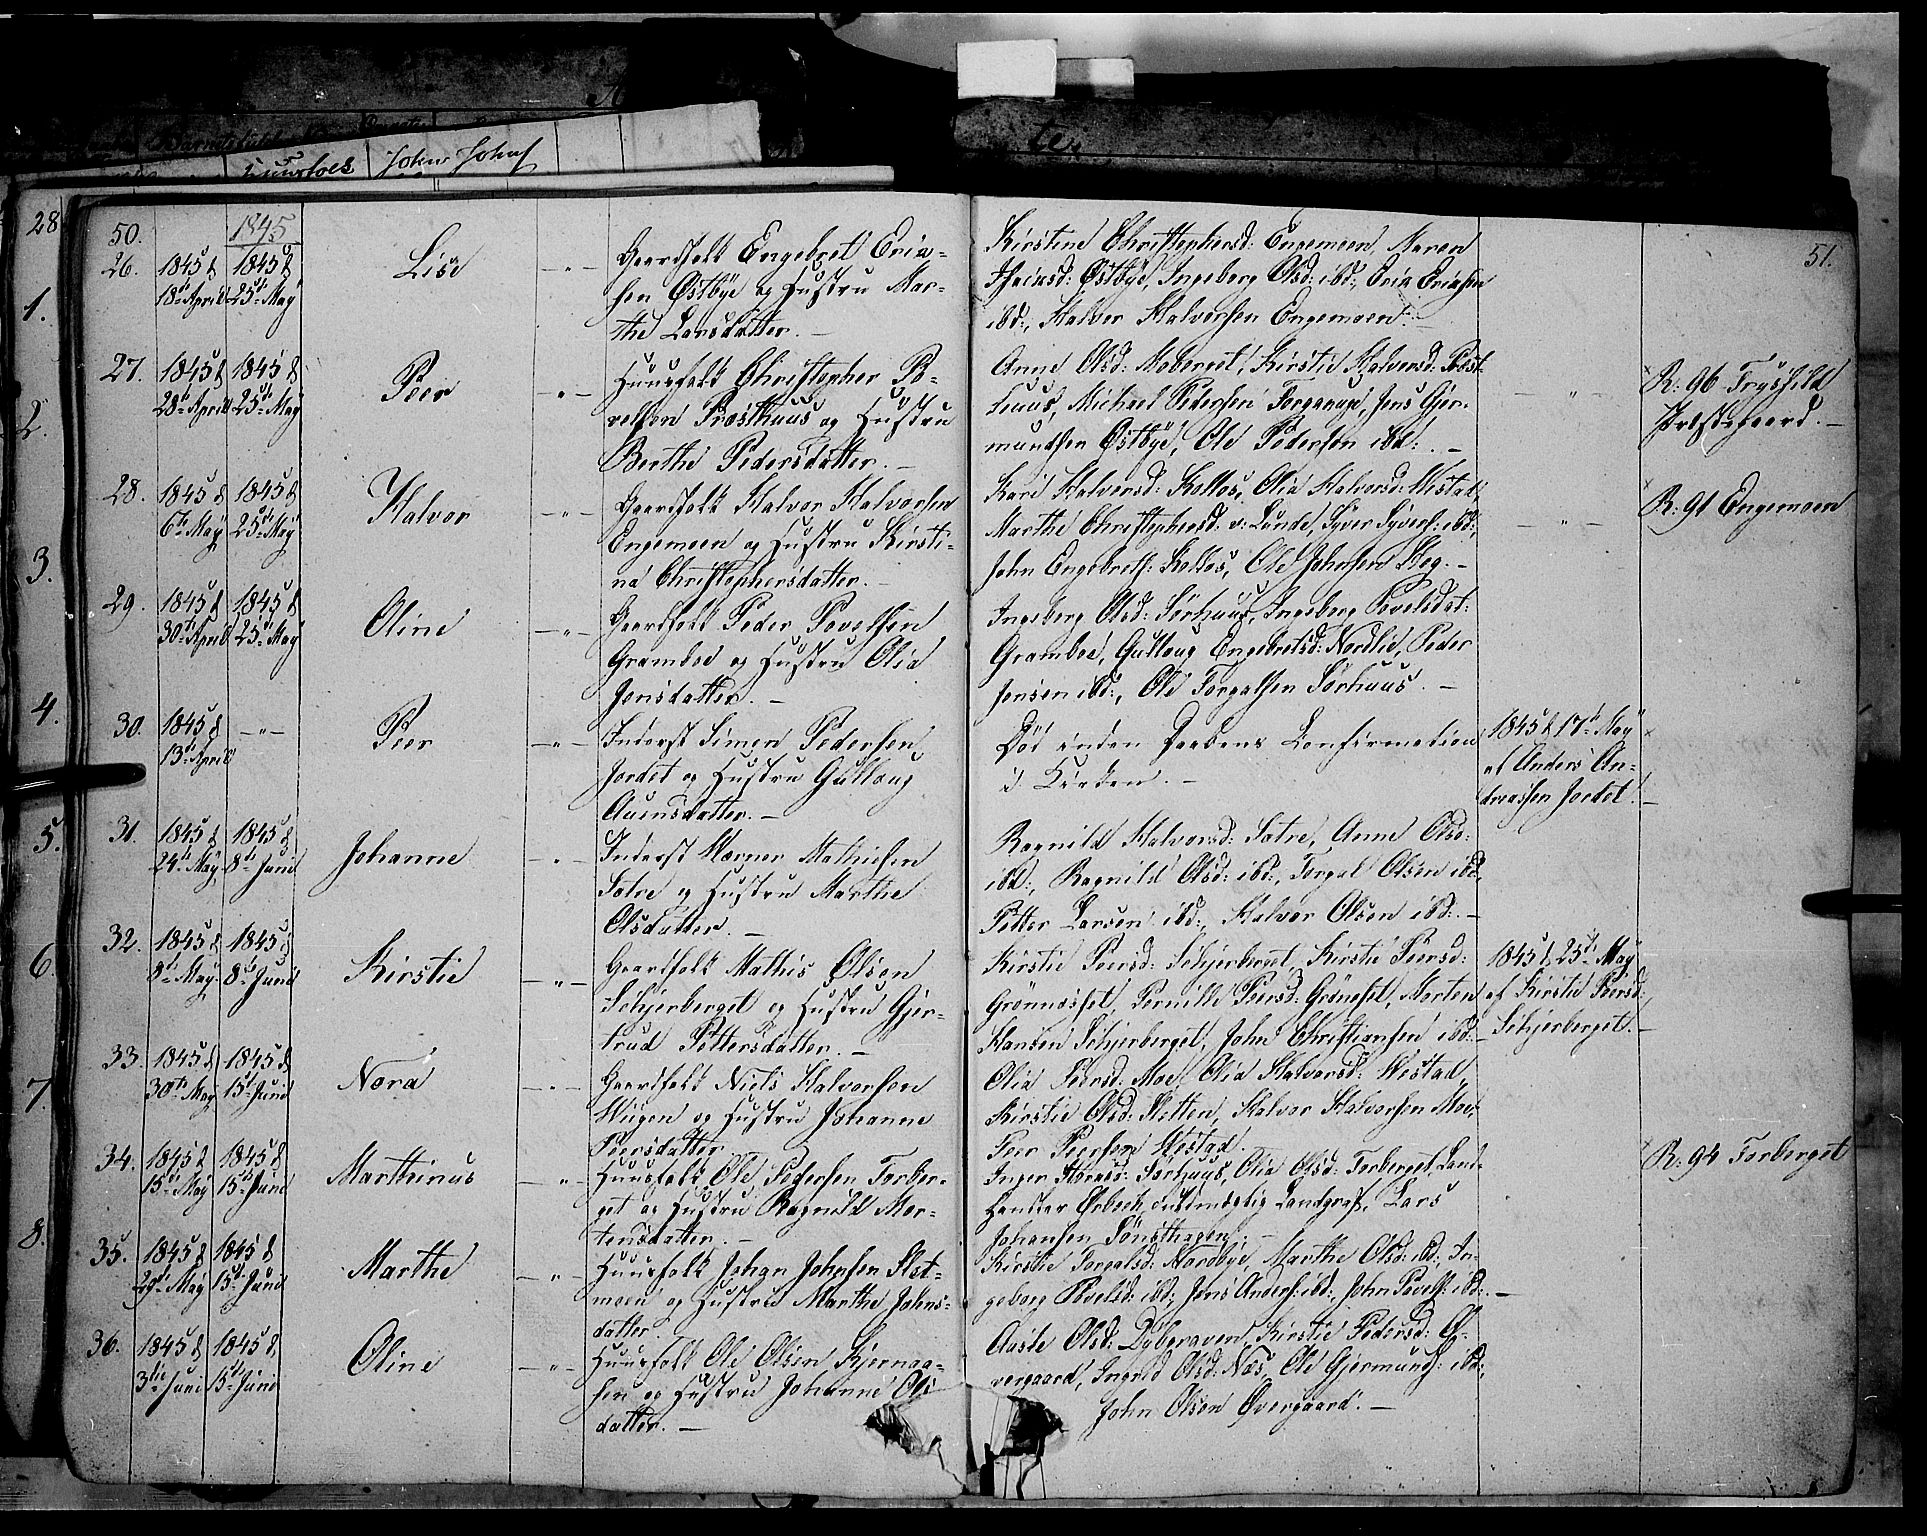 50.
1845
51.
26.
1845 d.
18de April
1845 d.
25de May
Lise
Gaardfolk Engebret Erik-
sen Østbye og Hustru Mar-
the Larsdatter. —
Kirstine Christophersd: Engemoen, Maren
Østbye, Ingeborg Olsd: ibd:, Erik Eriksen
ibd:, Halvor Halvorsen Engemoen. —
27.
1845 d.
1845 d.
25de May
Peer
Huusfolk Christopher Po-
velsen Præsthuus og Hustru
Berthe Pedersdatter. —
Anne Olsd: Moberget, Kirstie Halvorsd: Præst-
huus, Michael Pedersen Jens Gjer-
mundsen Østbye, Ole Pedersen ibd: . —
R: 96 Trysfild
Præstegaard. —
28.
1845 d.
6te May
1845 d.
25de May
Halvor
Gaardfolk Halvor Halvorsen
Engemoen og Hustru Kirsti-
na Christophersdatter. —
Kari Halvorsd: Kolos, Olia Halvorsd: Westad,
Marthe Christophersd: v: Lunde, Syver Syvers: ibd:,
John Engebrets: Kolos, Ole Johnsen Skog. —
R: 91 Engemoen
29.
1845 d.
30te April
1845 d.
25de May
Oline
Gaardfolk Peder Povelsen
Gramboe og Hustru Olia
Jensdatter. —
Ingeborg Olsd: Sørhuus, Ingeborg Povelsdat:
Gramboe, Gulloug Engebretsd: Nordlie, Peder
Jensen ibd:, Ole Torgalsen Sørhuus. —
30.
1845 d.
13de April
Peer
Inderst Simen Pedersen
Jordet og Hustru Gulloug
datter. —
Død inden Daabens Confirmation
i Kirken. —
1845 d. 17de May
af Anders An-
dreassen Jordet. —
31.
1845 d.
24de May
1845 d.
8de Juni
Johanne
Inderst Werner Mathisen
Sætre og Hustru Marthe
Olsdatter. —
Ragnild Halvorsd: Sætre, Anne Olsd:
ibd:, Ragnild Olsd: ibd:, Torgal Olsen ibd:,
Petter Larsen ibd:, Halvor Olsen ibd: —
32.
1845 d.
8de May
1845 d.
8de Juni
Kirstie
Gaardfolk Mathis Olsen
Schjerberget og Hustru Gjer-
trud Pettersdatter. —
Kirstie Peersd: Schjerberget, Kirstie Peersd:
Grønnæsset, Pernille Peersd: Grønesset, Morten
Hansen Schjerberget, John Christiansen ibd: —
1845 d. 25de May
af Kirstie Peersd:
Schjerberget. —
33.
1845 d.
30te May
1845 d.
15de Juni
Nora
Gaardfolk Niels Halvorsen
Wiigen og Hustru Johanne
Peersdatter.
Olia Peersd: Moe, Olia Halvorsd: Westad,
Kirstie Olsd: Sletten, Halvor Halvorsen Moe,
Peer Peersen Westad.
34.
1845 d.
15de May
1845 d.
15de Juni
Marthinus
Huusfolk Ole Pedersen Torber-
get og Hustru Ragnild Mor-
tensdatter. —
Inger Sørhuus, Olia Olsd: Torberget, Land-
Landgraf, Lars
Johansen Sønsthagen. —
R: 94 Torberget
35.
1845 d.
29de May
1845 d.
15de Juni
Marthe
Huusfolk Johan Johnsen Slet-
moen og Hustru Marthe Johns-
datter.
Kirstie Torgalsd: Nordbye, Marthe Olsd: ibd:, In-
geborg Povelsd: ibd:, Jens Anders: ibd:, John Povels: ibd: —
36.
1845 d.
3die Juni
1845 d.
15de Juni
Oline
Huusfolk Ole Olsen Kjernaa-
sen og Hustru Johanne Ols-
datter. —
Aaste Olsd: Dybgraven, Kirstie Pedersd: Ø-
vergaard, Ingrid Olsd: Næs, Ole Gjermunds: ibd:,
John Olsen Øvergaard. —
28
1.
2.
3.
4.
5.
6.
7.
8.